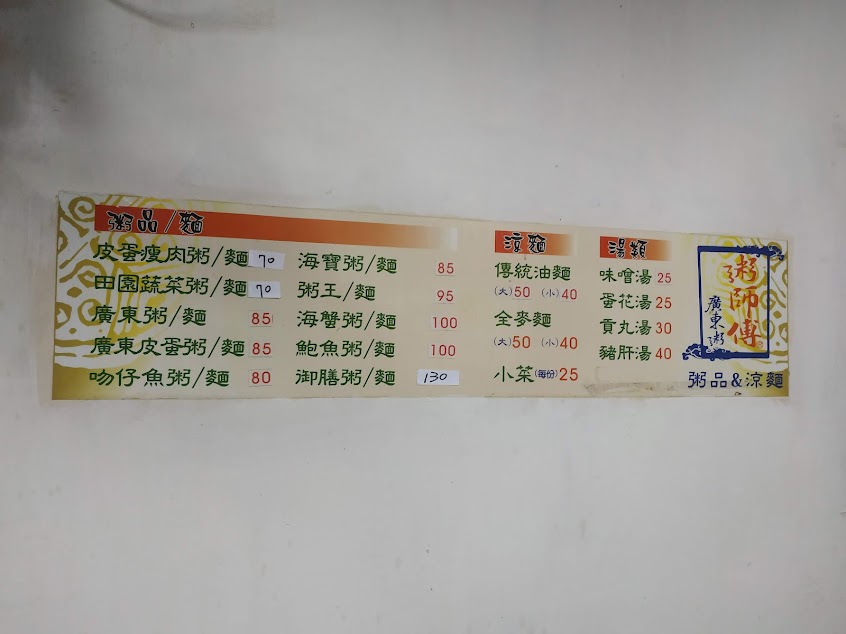 粥品/麵
皮蛋瘦肉粥/麵 70
田園蔬菜粥/麵 70
廣東粥/麵 85
廣東皮蛋粥/麵 85
吻仔魚粥/麵 80
海寶粥/麵 85
粥王/麵 95
海蟹粥/麵 100
鮑魚粥/麵 100
御膳粥/麵 130
涼麵
傳統油麵
(大)50 (小)40
全麥麵
(大)50 (小)40
小菜(每份)25
湯類
味噌湯 25
蛋花湯 25
貢丸湯 30
豬肝湯 40
粥師傅
廣東粥
粥品&涼麵